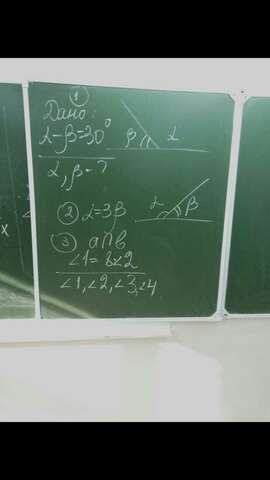 ①
Дано:
α-β=30°
α, β-?
β α
② α=3β
α β
③ a∩b
∠1=8∠2
∠1,∠2,∠3,∠4
x